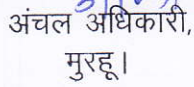 अंचल अधिकारी,
मुरहू।